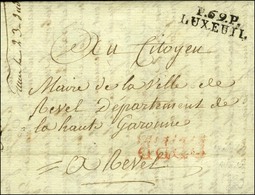 P.69.P.
LUXEUIL
Au Citoyen
Maire de la Ville de
Revel Département de
la haute Garonne
= a Revel =